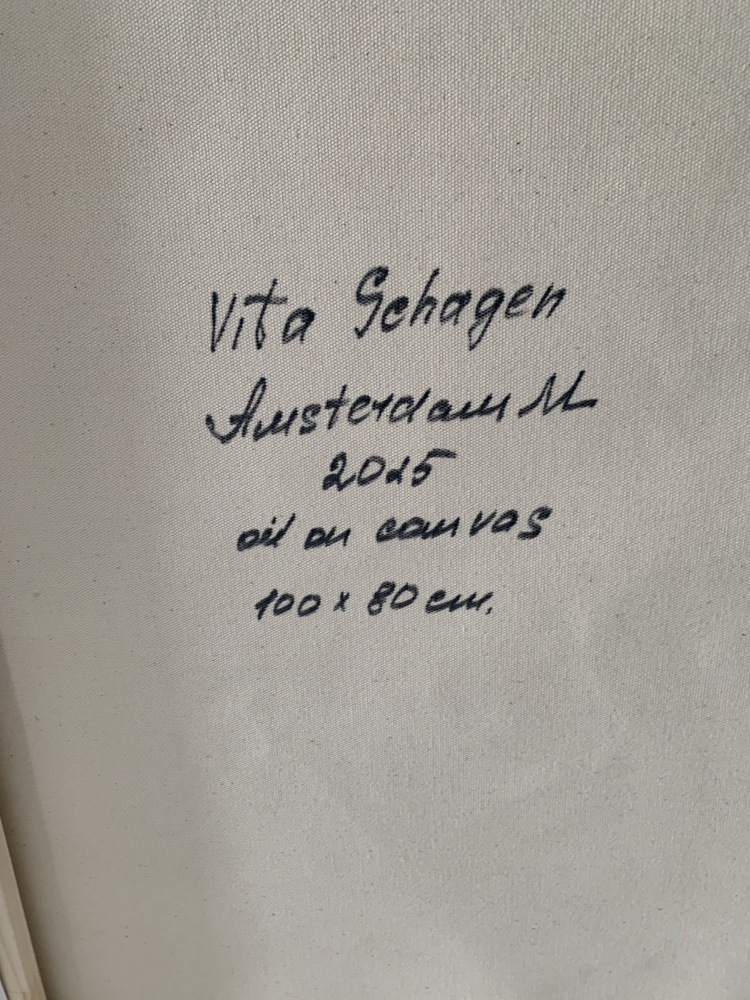 Vita Schagen
Amsterdam NL
2025
oil on canvas
100 x 80 cm.